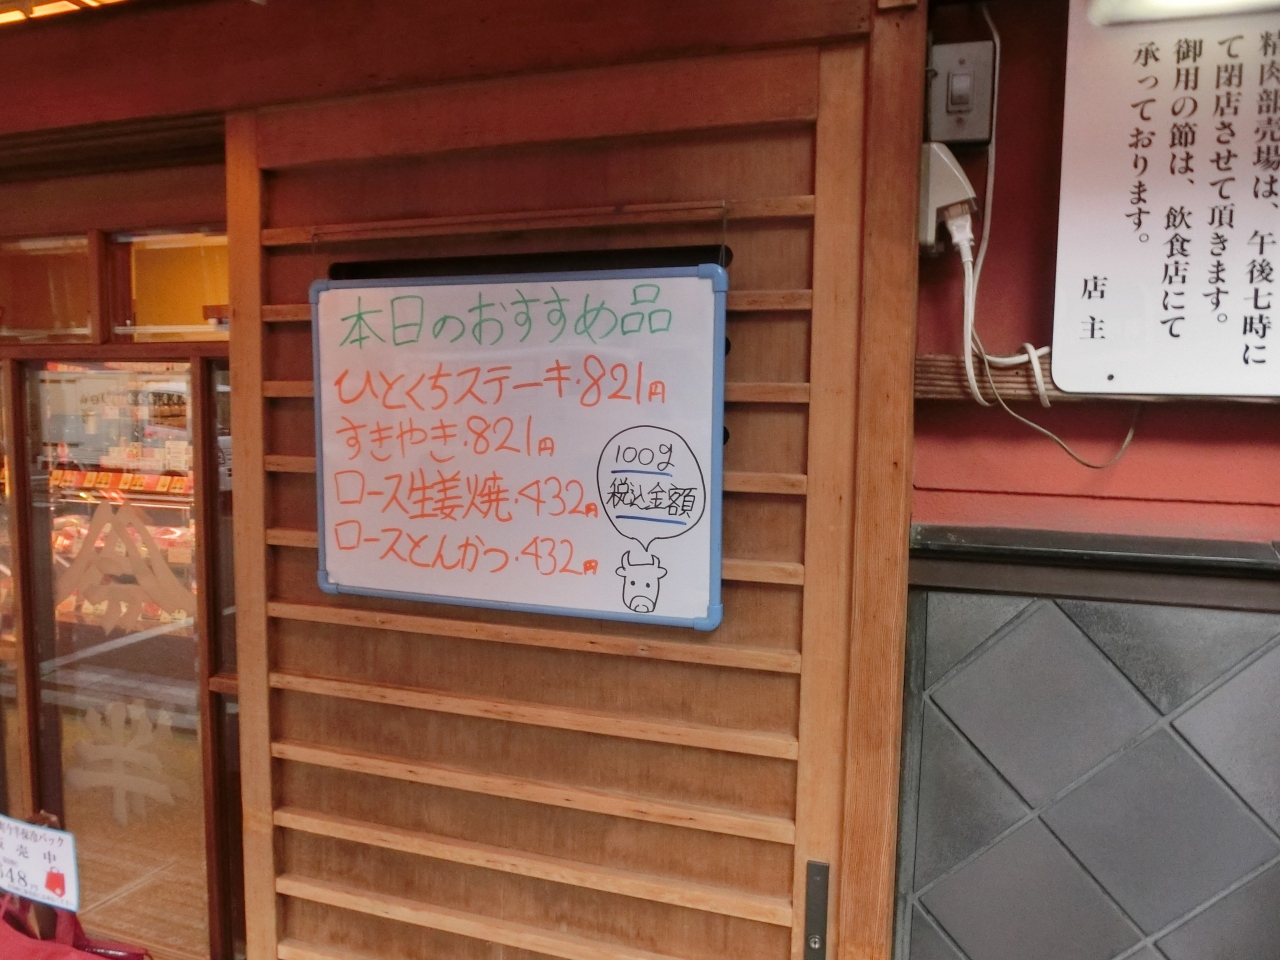 本日のおすすめ品
ひとくちステーキ・821円
すきやき・821円
ロース生姜焼・432円
ロースとんかつ・432円
100g
税込金額
精肉部売場は、午後七時に
て閉店させて頂きます。
御用の節は、飲食店にて
承っております。
店主
今半
今半保冷バック
売中
648円